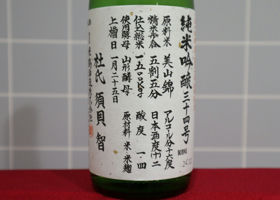 純米吟醸三十四号
原料米 美山錦
アルコール分十六度
精米歩合 五割五分
日本酒度 十二
仕込総米 一五〇〇キロ
酸度 一・四
使用酵母 山形酵母
原材料 米・米麹
上槽日 一月二十五日
杜氏 須貝智